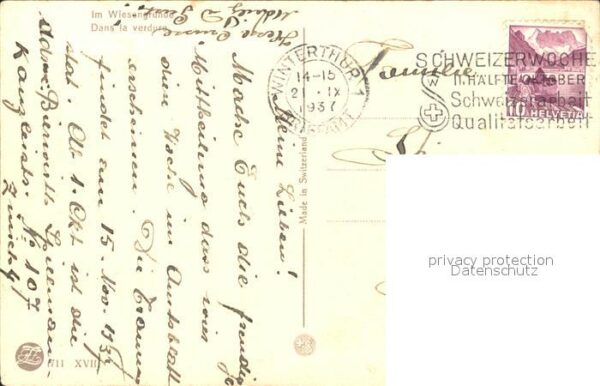 Im Wiesengrunde
Dans la verdure
Meine Lieben!
Mache Euch die freudige
Mitteilung dass wir
diese Woche im Amtsblatt
erscheinen. Die Trauung
findet am 15. Nov. 1937
statt. Ab 1. Okt ist die
Adr: 
Kanzleistr. No 107
Zürich 4
Herzl. Grüsse
Made in Switzerland
711 XVII
WINTERTHUR 1
14-15
21. IX
1937
SCHWEIZERWOCHE
II. HÄLFTE OKTOBER
Schweizerarbeit
Qualitätsarbeit
10 HELVETIA
Familie
privacy protection
Datenschutz